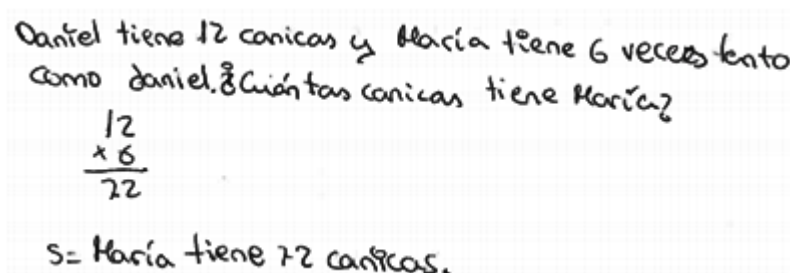 Daniel tiene 12 canicas y María tiene 6 veces tento
como daniel. ¿Cuántas canicas tiene María?
12
x 6
72
S= María tiene 72 canicas.